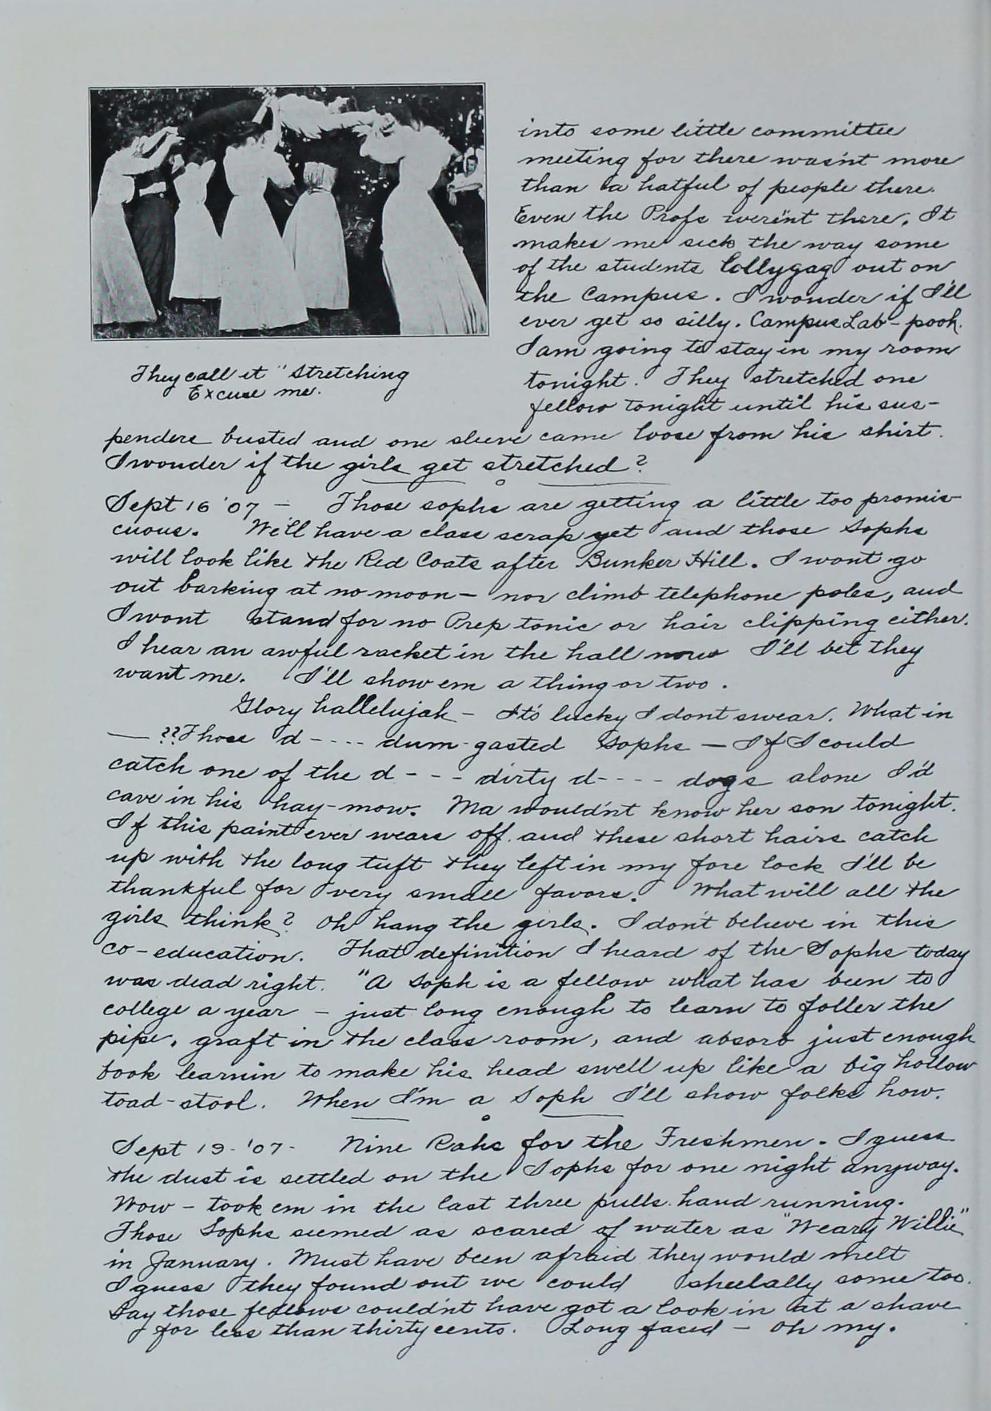 into some little committee
meeting for there wasn't more
than a hatful of people there.
Even the Profs weren't there. It
makes me sick the way some
of the students lollygag out on
the Campus. I wonder if I'll
ever get so silly. Campus Lab - pooh.
I am going to stay in my room
tonight. They stretched one
fellow tonight until his sus-
They call it "Stretching
Excuse me.
penders busted and one sleeve came loose from his shirt.
I wonder if the girls get stretched?
Sept 16 '07 - Those sophs are getting a little too promis-
cuous. We'll have a class scrap yet and those Sophs
will look like the Red Coats after Bunker Hill. I wont go
out barking at no moon - nor climb telephone poles, and
I wont stand for no Prep tonic or hair clipping either.
I hear an awful racket in the hall now I'll bet they
want me. I'll show em a thing or two.
Glory hallelujah - It's lucky I dont swear. What in
— ??Those d---- dum-gasted Sophs - If I could
catch one of the d--- dirty d---- dogs alone I'd
cave in his hay-mow. Ma wouldn't know her son tonight.
If this paint ever wears off and these short hairs catch
up with the long tuft they left in my fore lock I'll be
thankful for very small favors. What will all the
girls think? Oh hang the girls. I don't believe in this
co-education. That definition I heard of the Sophs today
was dead right. "A Soph is a fellow what has been to
college a year - just long enough to learn to foller the
pipe, graft in the class room, and absorb just enough
book learnin to make his head swell up like a big hollow
toad-stool. When I'm a Soph I'll show folks how.
Sept 19-'07- Nine Rahs for the Freshmen. I guess
the dust is settled on the Sophs for one night anyway.
Wow - took em in the last three pulls hand running.
Those Sophs seemed as scared of water as "Weary Willie"
in January. Must have been afraid they would melt
I guess they found out we could sheelally some too.
Say those fellows couldn't have got a look in at a shave
for less than thirty cents. Long faced - oh my.